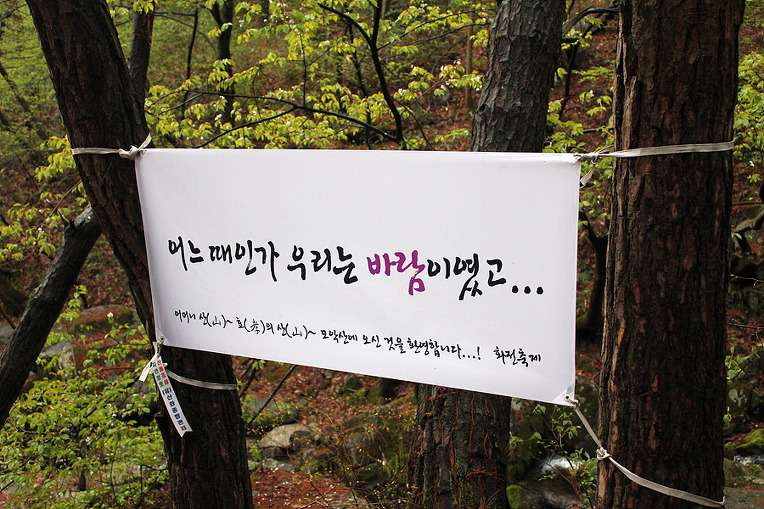 어느 때인가 우리는 바람이였고...
어머니 산(山)~ 효(孝)의 산(山)~ 모악산에 오신 것을 환영합니다...! 화전축제